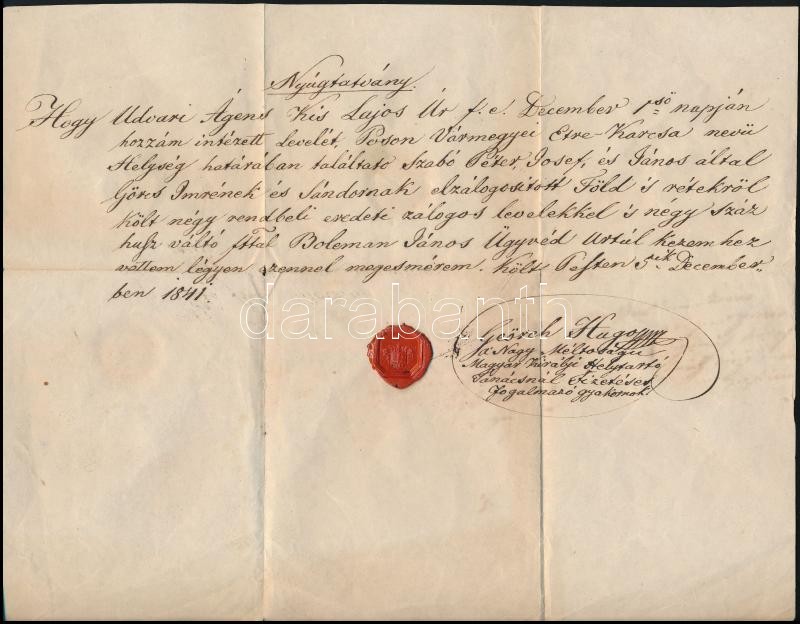 Nyúgtatvány.
Hogy Udvari Ágens Kis Lajos Úr f. e. December 1ső napján
hozzám intézett levelét, Poson Vármegyei Etre-Karcsa nevü
Helység határában találtató Szabó Péter, Josef, és János által
Göres Imrének és Sándornak elzálogosított Föld is rétekröl
költ négy rendbeli eredeti zálogos levelekkel is négy száz
husz váltó fttal Boleman János Ügyvéd Urtúl kezemhez
vettem légyen ezennel megesmérem. Költ Pesten 5ik December
ben 1841.
Görch Hugo
A Nagy Méltóságu
Magyar Királyi Helytartó
Tanácsnál Fizetéses
Fogalmazó gyakornok
darabanth